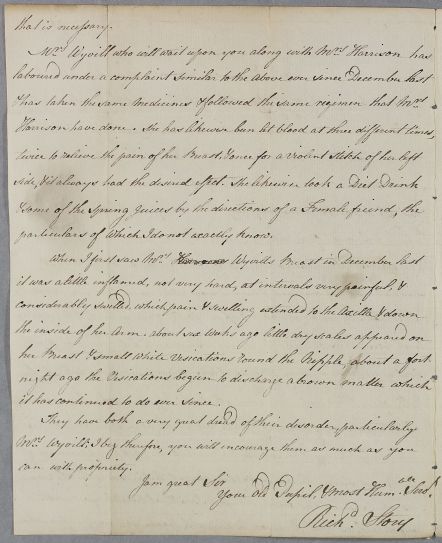 that is necessary.
Mrs. Wyvill who will wait upon you along with Mrs. Harrison has
labour'd under a complaint similar to the above ever since December last
& has taken the same Medicines & followed the same regimen that Mrs.
Harrison have done. She has likewise ben let blood at three different times,
twice to relieve the pain of her Breast, & once for a violent stitch of her left
side, & it always had the desired effect. She likewise took a Diet Drink
& some of the Spring Juices by the directions of a Female friend, the
particulars of which I do not exactly know.
When I first saw Mrs. Wyvill's Breast in December last
it was a little inflamed, not very hard, at intervals very painful, &
considerably swelled, which pain & swelling extended to the Axilla & down
the inside of her Arm. about six weeks ago little dry scales appeared on
her Breast & small white Vesications round the Nipple, about a fort
night ago the Vesications began to discharge a brown matter which
it has continued to do ever since.
They have both a very great dread of their disorder, particularly
Mrs. Wyvill. I beg therefore, you will encourage them as much as you
can with propriety.
I am great Sir
Your Old Pupil, & most Humble Servt.
Richd. Story